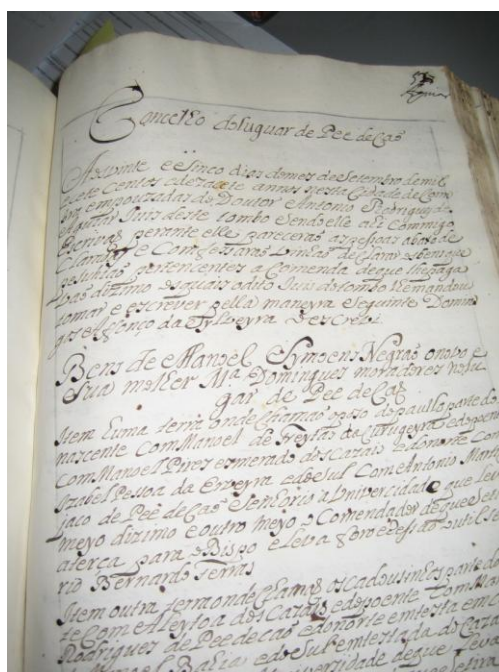 53
Aguiar
Concelho do luguar de Pee de Cas
Aos vinte e sinco dias do mes de Setembro de mil
e sete Centos e dezasete annos nesta Cidade de Coim
bra em pouzadas do Doutor Antonio Rodrigues de
Aguiar Juis deste tombo sendo elle ahi Commigo
Escrivão perante elle pareceras as pesoas abaxo de
Claradas e Comfessaras
pesuhidas pertencentes a Comenda de que lhe paga
vas dizimo as quais o dito Juis do tombo me mandou
tomar e escrever pella maneyra seguinte Domin
gos Affonço da Sylveyra o escrevi
Bens de Manoel Symoens Negrão o novo e
Sua molher Ma Domingues moradores no lu
gar de Pee de Cas
Item huma terra onde Chamas o paullo parte do
nascente Com Manoel de Freytas da e do poente
Com Manoel Pires do dos Cazais e do norte Com
Izabel Pessoa da e do sul Com Antonio Martins
de Pee de Cas e Senhorio a Univercidade que leva
meyo dizimo e outro meyo o Comendador de que se
a terça para o Bispo e leva
rio Bernardo Ferras
Item outra terra onde Chamas os parte do nascen
te Com dos Cazais e do poente Com
Rodrigues de Pee de cas e do norte emtesta em
Bahia e do Sul emtesta da dos Cazais
de que leva